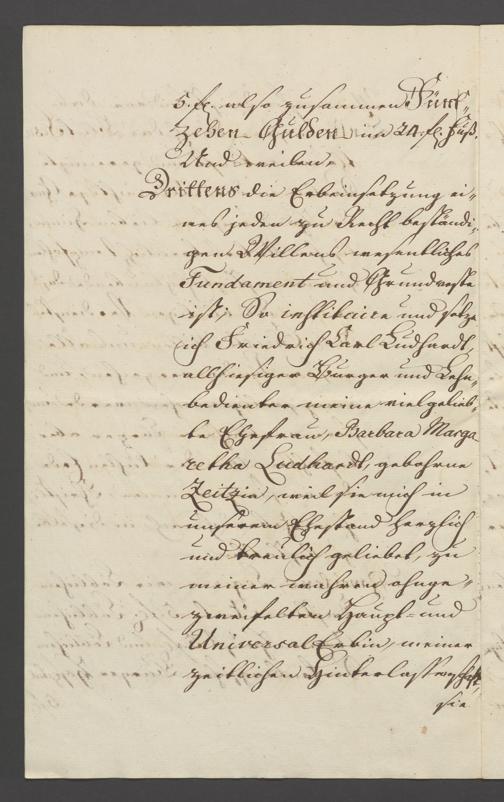 5. fl. also zusammen Fünf-
zehen Gulden im 24. fl. Fuß.
Und weilen
Drittens die Erbeinsetzung ei-
nes jeden zu Recht beständi-
gen Willens wesentliches
Fundament und Grundveste
ist; So instituire und setze
ich Friedrich Carl Ludhardt,
allhiesiger Burger und Lehn-
bedienter meine vielgelieb-
te Ehefrau, Barbara Marga
retha Ludhardt, gebohrne
Zeitzin, weil sie mich in
unserem Ehestand herzlich
und treulich geliebet, zu
meiner wahren ohnge-
zweifelten Haupt- und
Universal Erbin, meiner
zeitlichen Hinterlassenschaft
sie